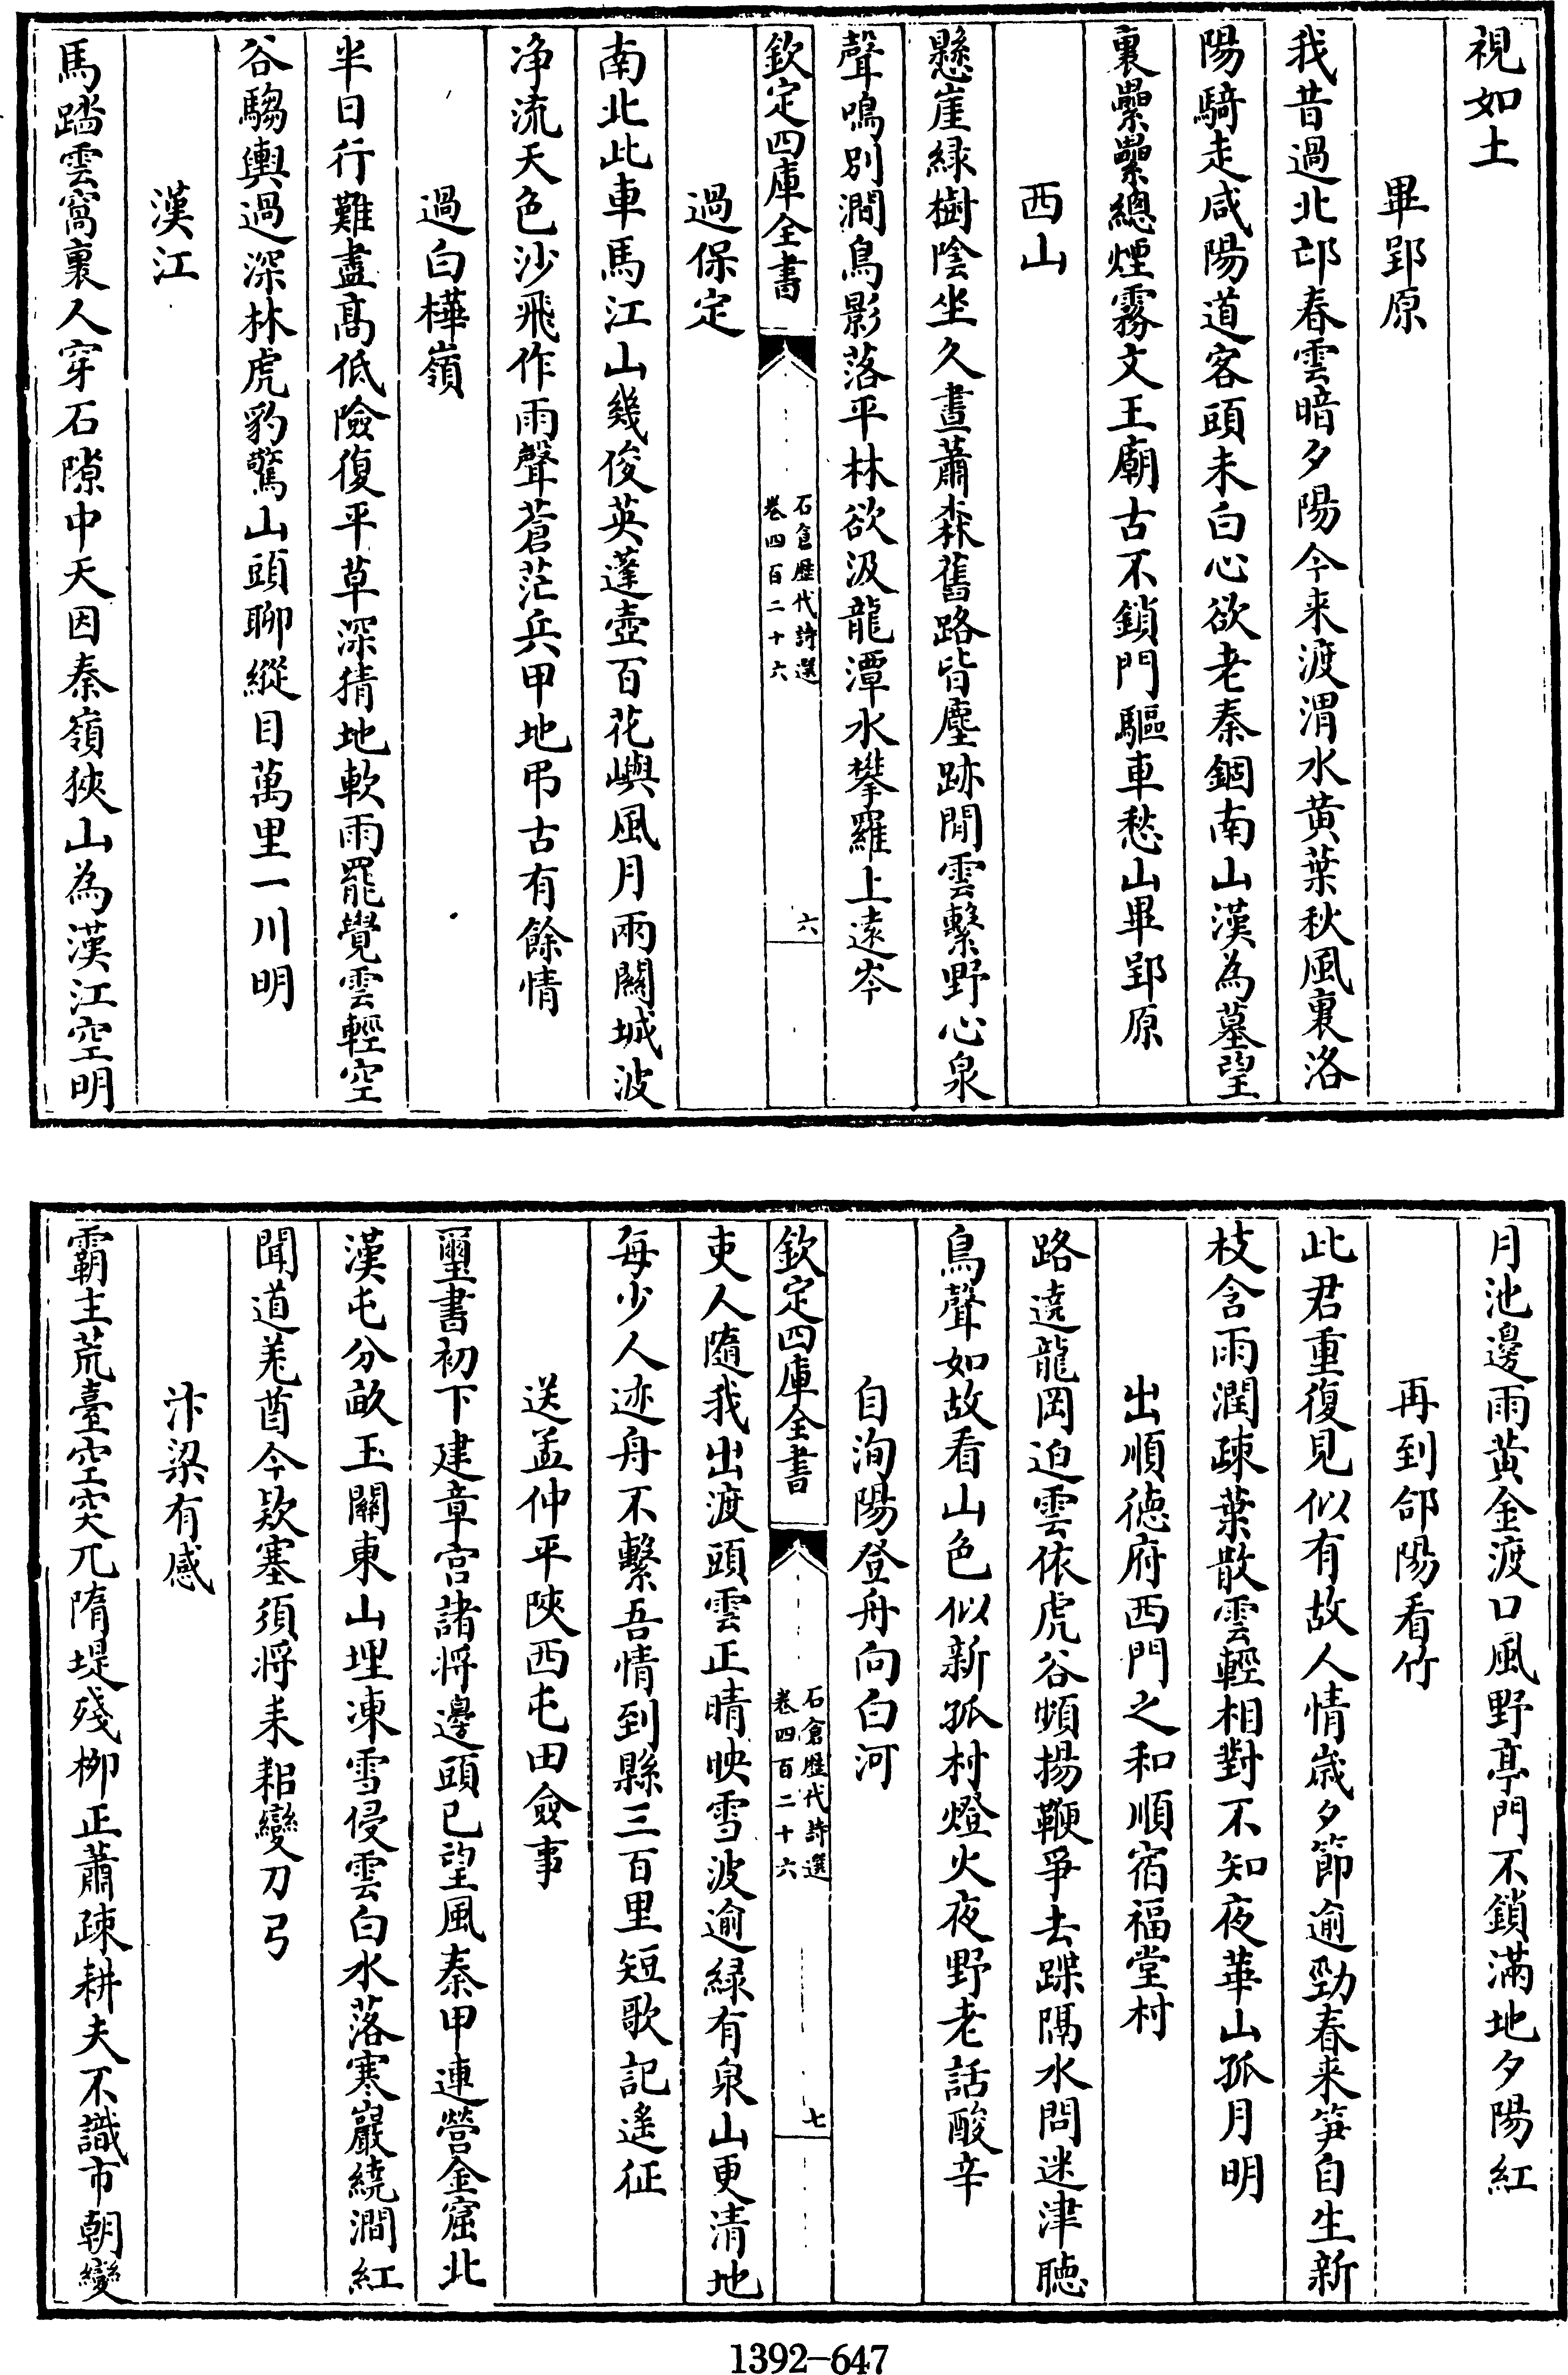 視如土
畢郢原
我昔過北邙春雲暗夕陽今来渡渭水黄葉秋風裏洛
陽騎走咸陽道客頭未白心欲老秦錮南山漢為墓望
裏纍纍總煙霧文王廟古不鎖門驅車愁山畢郢原
西山
懸崖緑樹陰坐久晝蕭森舊路皆塵跡閒雲繫野心泉
聲鳴別澗鳥影落平林欲汲龍潭水攀羅上遠岑
欽定四庫全書
石倉歴代詩選
卷四百二十六
六
過保定
南北此車馬江山幾俊英蓬壺百花嶼風月兩闗城波
净流天色沙飛作雨聲蒼茫兵甲地弔古有餘情
過白樺嶺
半日行難盡髙低險復平草深猜地軟雨罷覺雲輕空
谷騶輿過深林虎豹驚山頭聊縱目萬里一川明
漢江
馬踏雲窩裏人穿石隙中天因秦嶺狹山為漢江空明
月池邊雨黄金渡口風野亭門不鎖滿地夕陽紅
再到郃陽看竹
此君重復見似有故人情歳夕節逾勁春来笋自生新
枝含雨潤疎葉散雲輕相對不知夜華山孤月明
出順徳府西門之和順宿福堂村
路遶龍岡迫雲依虎谷頻揚鞭爭去蹀隔水問迷津聴
鳥聲如故看山色似新孤村燈火夜野老話酸辛
自洵陽登舟向白河
欽定四庫全書
石倉歴代詩選
卷四百二十六
七
吏人隨我出渡頭雲正晴映雪波逾緑有泉山更清地
每少人迹舟不繫吾情到縣三百里短歌記遙征
送孟仲平陜西屯田僉事
璽書初下建章宫諸将邊頭已望風秦甲連營金窟北
漢屯分畝玉關東山埋凍雪侵雲白水落寒巖繞澗紅
聞道羌酋今欵塞須将耒耜變刀弓
汴梁有感
霸主荒臺空突兀隋堤殘栁正蕭疎耕夫不識市朝變
1392-647